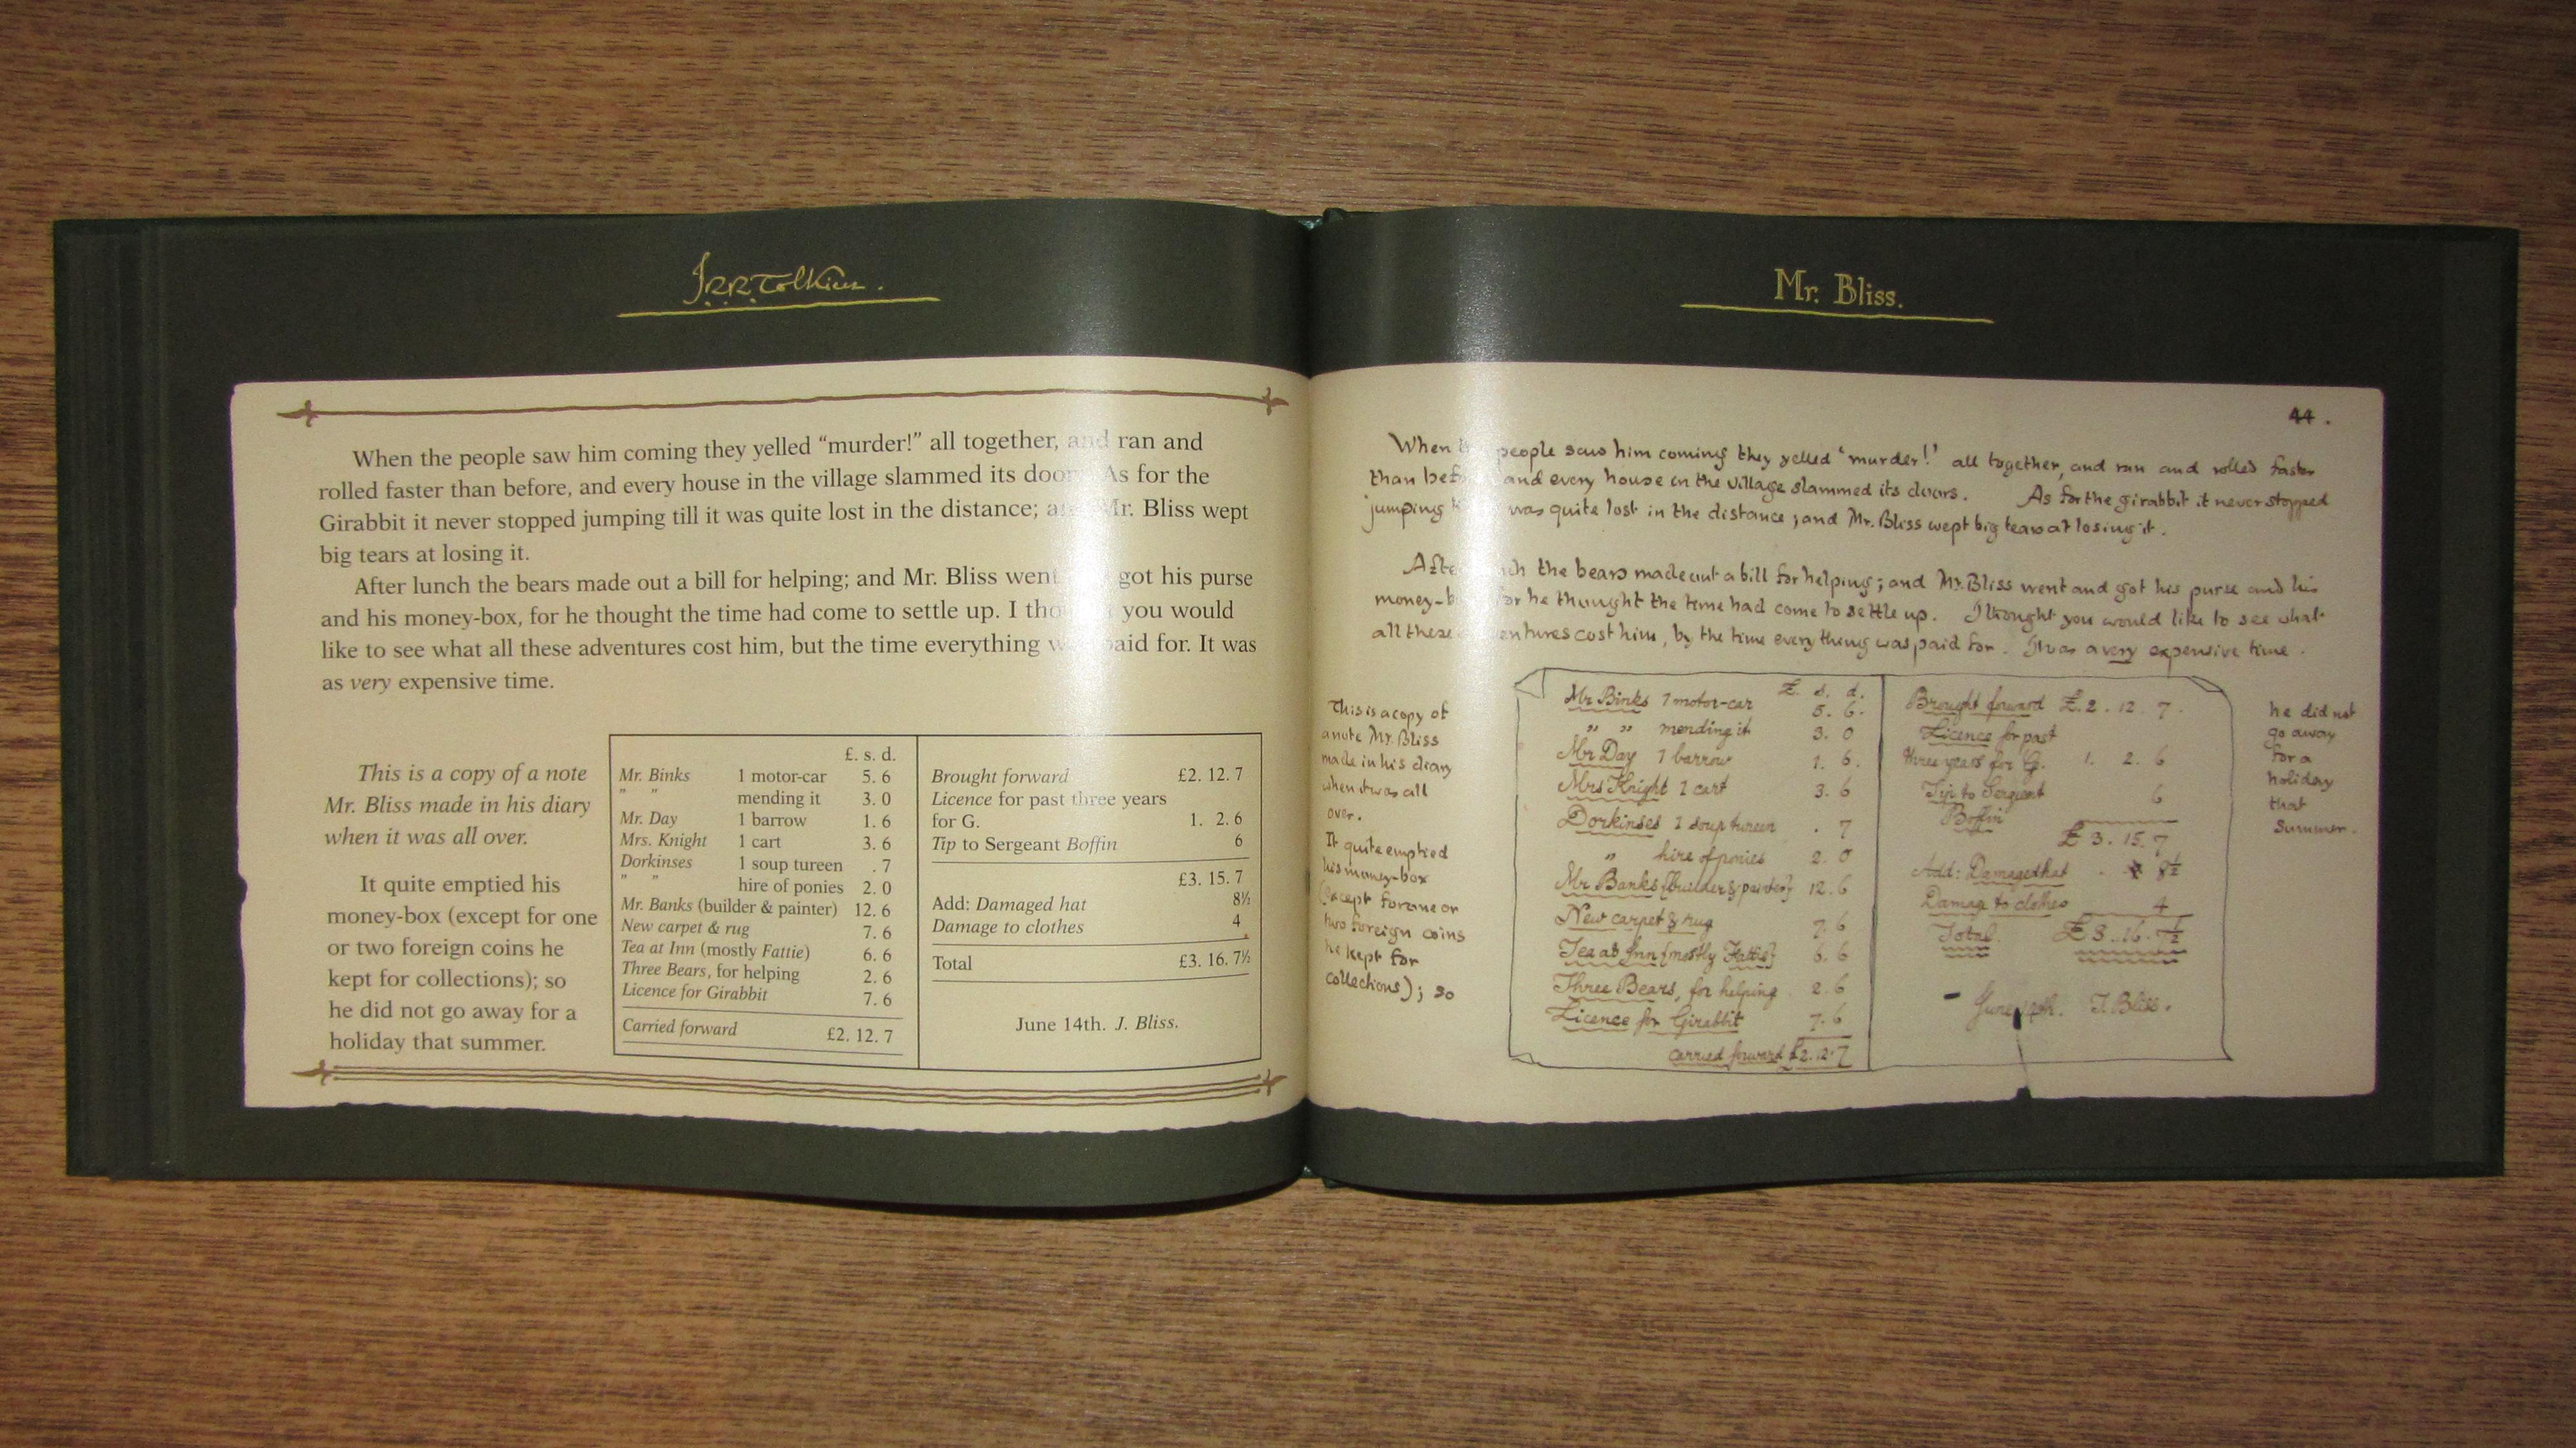 JRRTolkien.
When the people saw him coming they yelled “murder!” all together, and ran and
rolled faster than before, and every house in the village slammed its door As for the
Girabbit it never stopped jumping till it was quite lost in the distance; Mr. Bliss wept
big tears at losing it.
After lunch the bears made out a bill for helping; and Mr. Bliss went got his purse
and his money-box, for he thought the time had come to settle up. I you would
like to see what all these adventures cost him, but the time everything paid for. It was
as very expensive time.
This is a copy of a note
Mr. Bliss made in his diary
when it was all over.
It quite emptied his
money-box (except for one
or two foreign coins he
kept for collections); so
he did not go away for a
holiday that summer.
£. s. d.
Mr. Binks 1 motor-car 5. 6
" " mending it 3. 0
Mr. Day 1 barrow 1. 6
Mrs. Knight 1 cart 3. 6
Dorkinses 1 soup tureen . 7
" " hire of ponies 2. 0
Mr. Banks (builder & painter) 12. 6
New carpet & rug 7. 6
Tea at Inn (mostly Fattie) 6. 6
Three Bears, for helping 2. 6
Licence for Girabbit 7. 6
Carried forward £2. 12. 7
Brought forward £2. 12. 7
Licence for past three years
for G. 1. 2. 6
Tip to Sergeant Boffin 6
£3. 15. 7
Add: Damaged hat 8½
Damage to clothes 4
Total £3. 16. 7½
June 14th. J. Bliss.
Mr. Bliss.
44.
When people saw him coming they yelled 'murder!' all together, and ran and rolled faster
than and every house in the village slammed its doors. As for the girabbit it never stopped
jumping was quite lost in the distance; and Mr. Bliss wept big tears at losing it.
the bears made out a bill for helping; and Mr. Bliss went and got his purse and his
he thought the time had come to settle up. I thought you would like to see what
all these cost him, by the time everything was paid for. It was a very expensive time.
This is a copy of
a note Mr. Bliss
made in his diary
when it was all
over.
It quite emptied
his money-box
(except for one or
two foreign coins
he kept for
collections); so
£. s. d.
Mr Binks 1 motor-car 5. 6.
" " mending it 3. 0
Mr Day 1 barrow 1. 6.
Mrs Knight 1 cart 3. 6
Dorkinses 1 soup tureen . 7
" hire of ponies 2. 0
Mr Banks (builder & painter) 12. 6
New carpet & rug 7. 6
Tea at Inn (mostly Fattie) 6. 6
Three Bears, for helping 2. 6
Licence for Girabbit 7. 6
carried forward £2. 12. 7
Brought forward £. 2. 12. 7.
Licence for past
three years for G. 1. 2. 6
Tip to Sergeant 6
Boffin
£ 3. 15. 7
Add: Damaged hat 8½
Damage to clothes 4
Total. £ 3. 16. 7½
June 14th. J. Bliss.
he did not
go away
for a
holiday
that
summer.